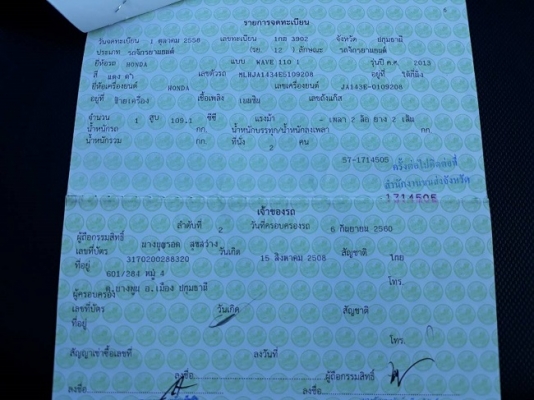 รายการจดทะเบียน
วันจดทะเบียน 1 ตุลาคม 2556 เลขทะเบียน 1กธ 3902 จังหวัด ปทุมธานี
ประเภท รถจักรยานยนต์ (รย. 12 ) ลักษณะ รถจักรยานยนต์
ยี่ห้อรถ HONDA แบบ WAVE 110 i รุ่นปี ค.ศ. 2013
สี แดง ดำ เลขตัวรถ MLHJA1434E5109208 อยู่ที่
ยี่ห้อเครื่องยนต์ HONDA เลขเครื่องยนต์ JA143E-0109208
อยู่ที่ เชื้อเพลิง เบนซิน เลขถังแก๊ส
จำนวน 1 สูบ 109.1 ซีซี แรงม้า - เพลา 2 ล้อ ยาง 2 เส้น
น้ำหนักรถ กก. น้ำหนักบรรทุก/น้ำหนักลงเพลา กก.
น้ำหนักรวม กก. ที่นั่ง 2 คน
57-1714505
ครั้งต่อไปติดต่อที่
สำนักงานขนส่งจังหวัด
1714505
เจ้าของรถ
ลำดับที่ 2 วันที่ครอบครองรถ 6 กันยายน 2560
ผู้ถือกรรมสิทธิ์
เลขที่บัตร 3170200288320 วันเกิด 15 สิงหาคม 2508 สัญชาติ ไทย
ที่อยู่ 601/284 หมู่ 4 โทร.
อ.เมือง ปทุมธานี
ผู้ครอบครอง
เลขที่บัตร วันเกิด สัญชาติ
ที่อยู่
โทร.
สัญญาเช่าซื้อเลขที่ ลงวันที่
ลงชื่อ ผู้ถือกรรมสิทธิ์
ลงชื่อ